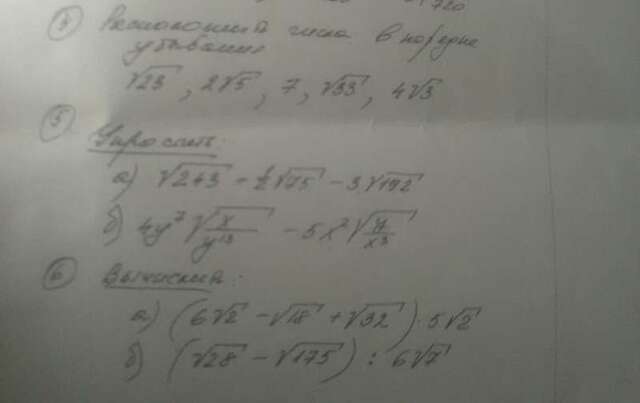 720
4) Расположить числа в порядке
убывания
√23 , 2√5 , 7 , √33 , 4√3
5) Упростить:
а) √243 - 1/2√75 - 3√192
б) 4y⁷ √(x/y¹³) - 5x² √(y/x³)
6) Вычислить:
а) (6√2 - √18 + √32) · 5√2
б) (√28 - √175) : 6√7